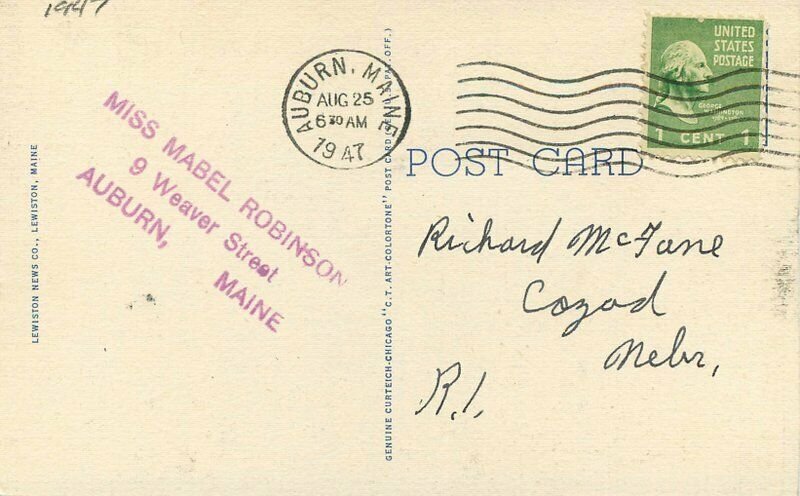 1947
MISS MABEL ROBINSON
9 Weaver Street
AUBURN,
MAINE
LEWISTON NEWS CO., LEWISTON, MAINE
AUBURN, MAINE
AUG 25
6 30 AM
1947
GENUINE CURTEICH-CHICAGO "C.T. ART-COLORTONE" POST CARD (REG. U.S. PAT. OFF.)
UNITED
STATES
POSTAGE
GEORGE
WASHINGTON
1 CENT 1
POST CARD
Richard McFane
Cozad
Nebr,
R.I.